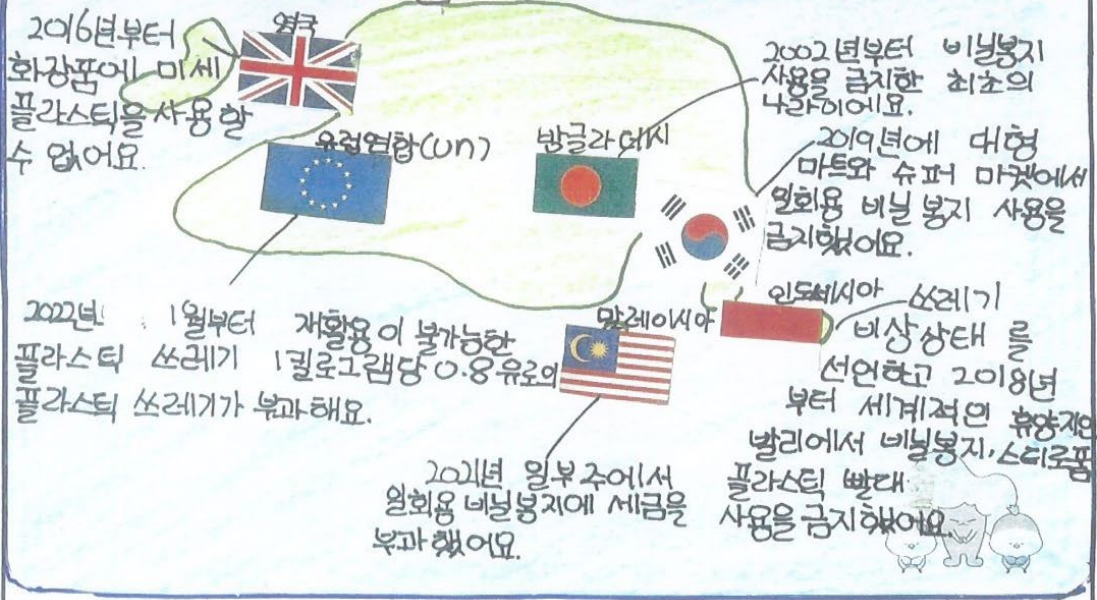 영국
2016년부터
화장품에 미세
플라스틱을 사용할
수 없어요.
유럽연합(un)
2022년 1월부터 재활용이 불가능한
플라스틱 쓰레기 1킬로그램당 0.8유로의
플라스틱 쓰레기가 부과해요.
방글라데시
2002년부터 비닐봉지
사용을 금지한 최초의
나라이에요.
2019년에 대형
마트와 슈퍼 마켓에서
일회용 비닐 봉지 사용을
금지했어요.
말레이시아
2021년 일부 주에서
일회용 비닐봉지에 세금을
부과했어요.
인도네시아
쓰레기
비상상태를
선언하고 2018년
부터 세계적인 휴양지인
발리에서 비닐봉지, 스티로폼
플라스틱 빨대
사용을 금지했어요.